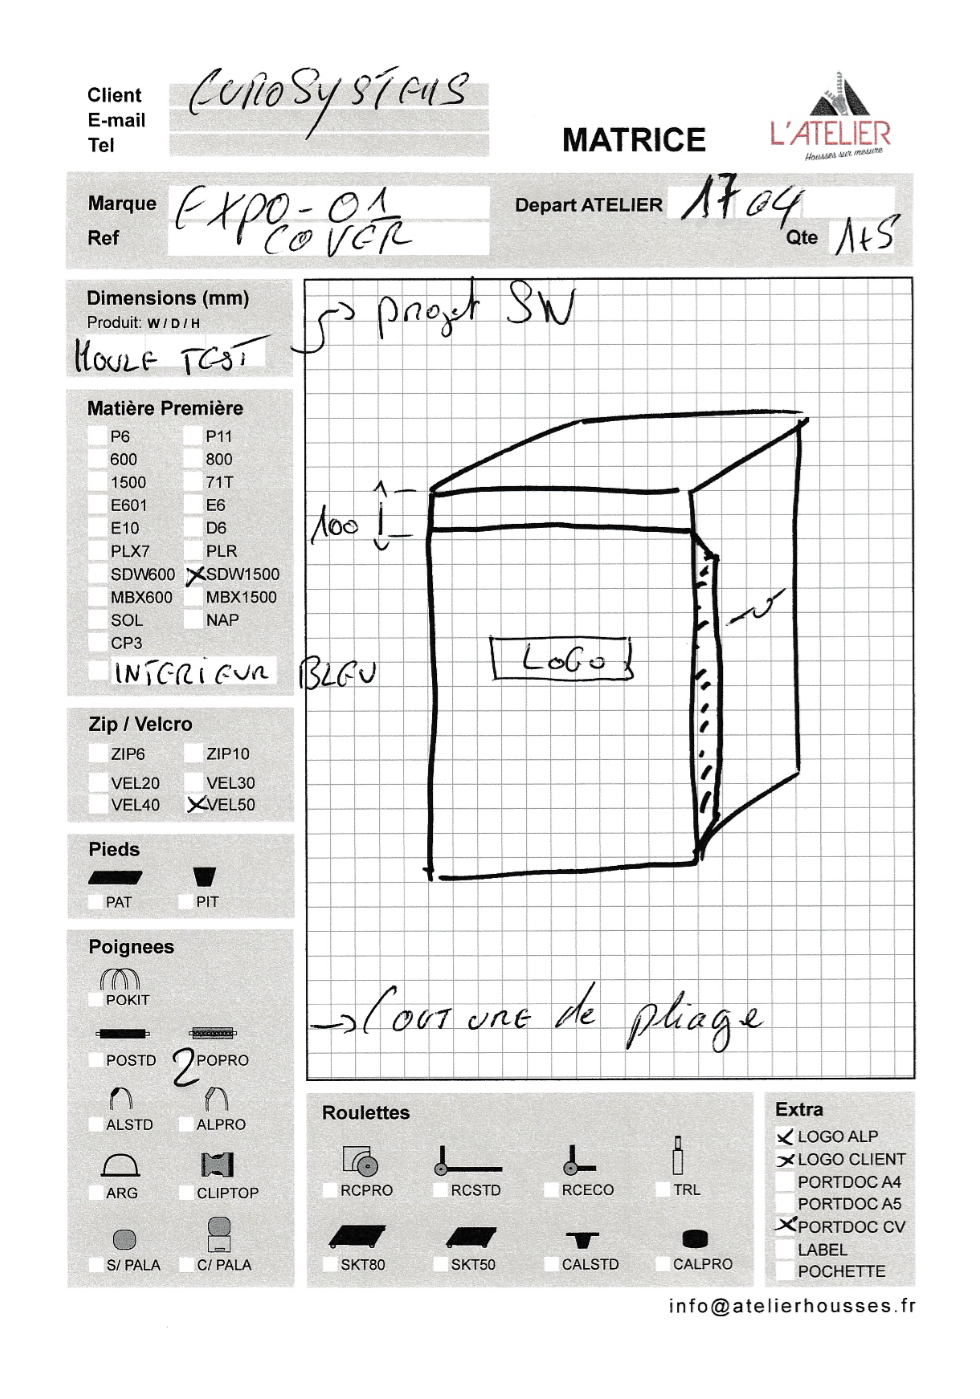 Client EUROSYSTEMS
E-mail
Tel
MATRICE
L'ATELIER
Housses sur mesure
Marque EXPO-01
Ref COVER
Depart ATELIER 17 04
Qte 1+5
Dimensions (mm)
Produit: W / D / H
MOULE TEST
→ projet SW
Matière Première
P6 P11
600 800
1500 71T
E601 E6
E10 D6
PLX7 PLR
SDW600 X SDW1500
MBX600 MBX1500
SOL NAP
CP3
INTERIEUR BLEU
100
LOGO
Zip / Velcro
ZIP6 ZIP10
VEL20 VEL30
VEL40 X VEL50
Pieds
PAT PIT
Poignees
POKIT
POSTD 2 POPRO
ALSTD ALPRO
ARG CLIPTOP
S/ PALA C/ PALA
→ COUTURE de pliage
Roulettes
RCPRO RCSTD RCECO TRL
SKT80 SKT50 CALSTD CALPRO
Extra
X LOGO ALP
X LOGO CLIENT
PORTDOC A4
PORTDOC A5
X PORTDOC CV
LABEL
POCHETTE
info@atelierhousses.fr